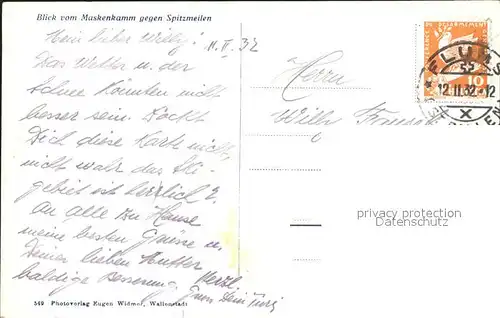 Blick vom Maskenkamm gegen Spitzmeilen
Mein lieber Willy! 11.II.32
Das Wetter u. der
Schnee könnten nicht
besser sein. Lockt
Dich diese Karte nicht,
nicht wahr das Ski-
gebiet ist herrlich?
An alle zu Hause
meine besten Grüsse u.
Deiner lieben Mutter
baldige Besserung. Herzl.
Gruss Dein
Herrn
Willy
FLUMS
12.II.32-12
X
10
privacy protection
watermark
549 Photoverlag Eugen Widmer, Wallenstadt